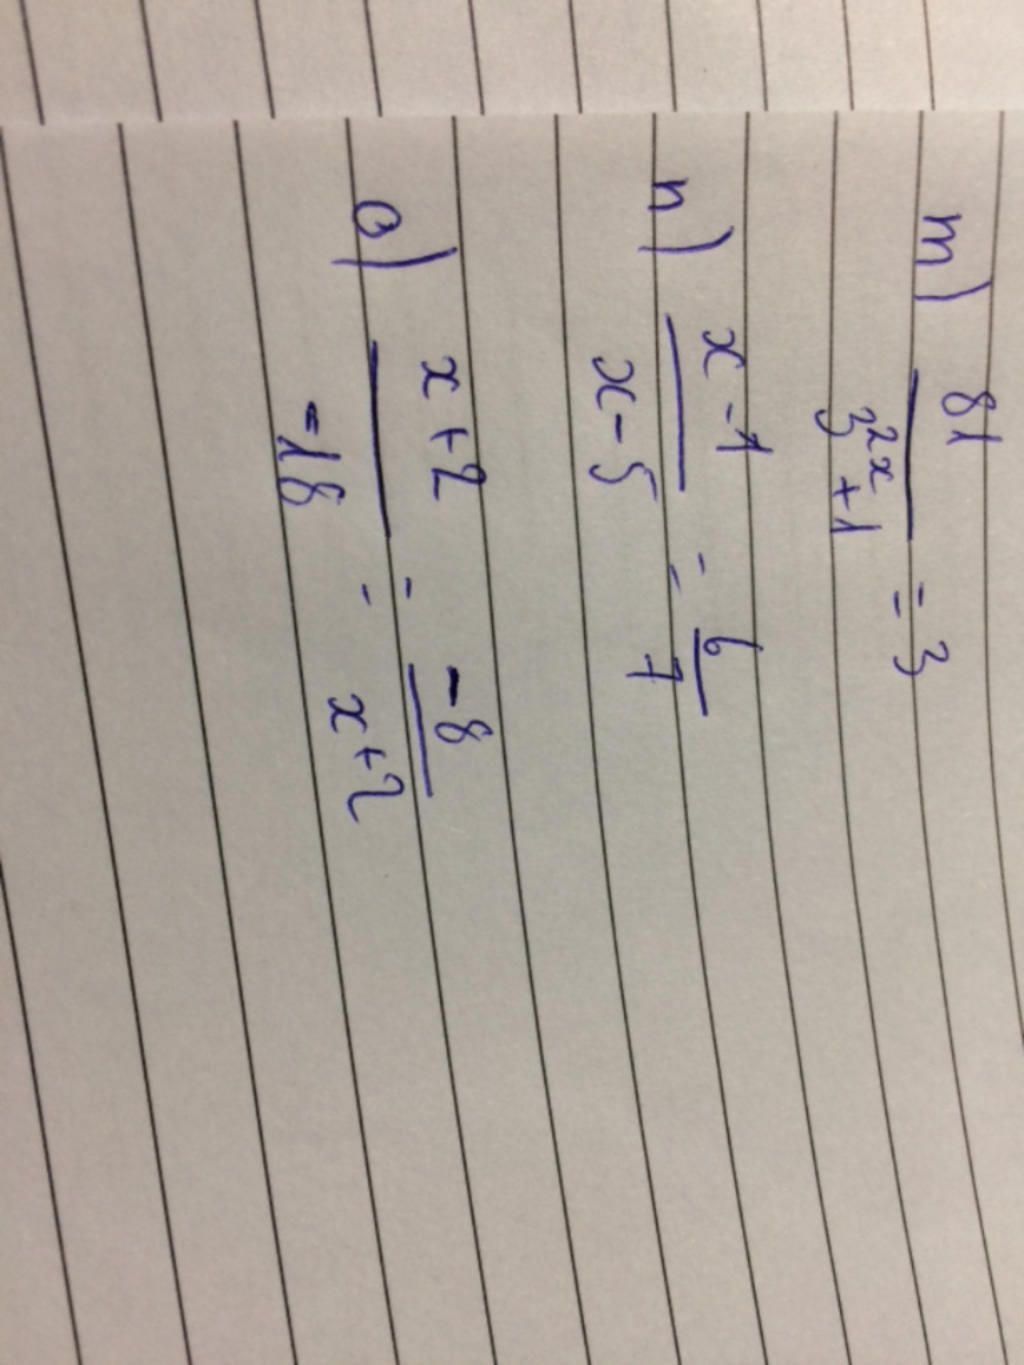 m) 81 / 3^2x + 1 = 3
n) x - 1 / x - 5 = 6 / 7
o) x + 2 / -18 = -8 / x + 2